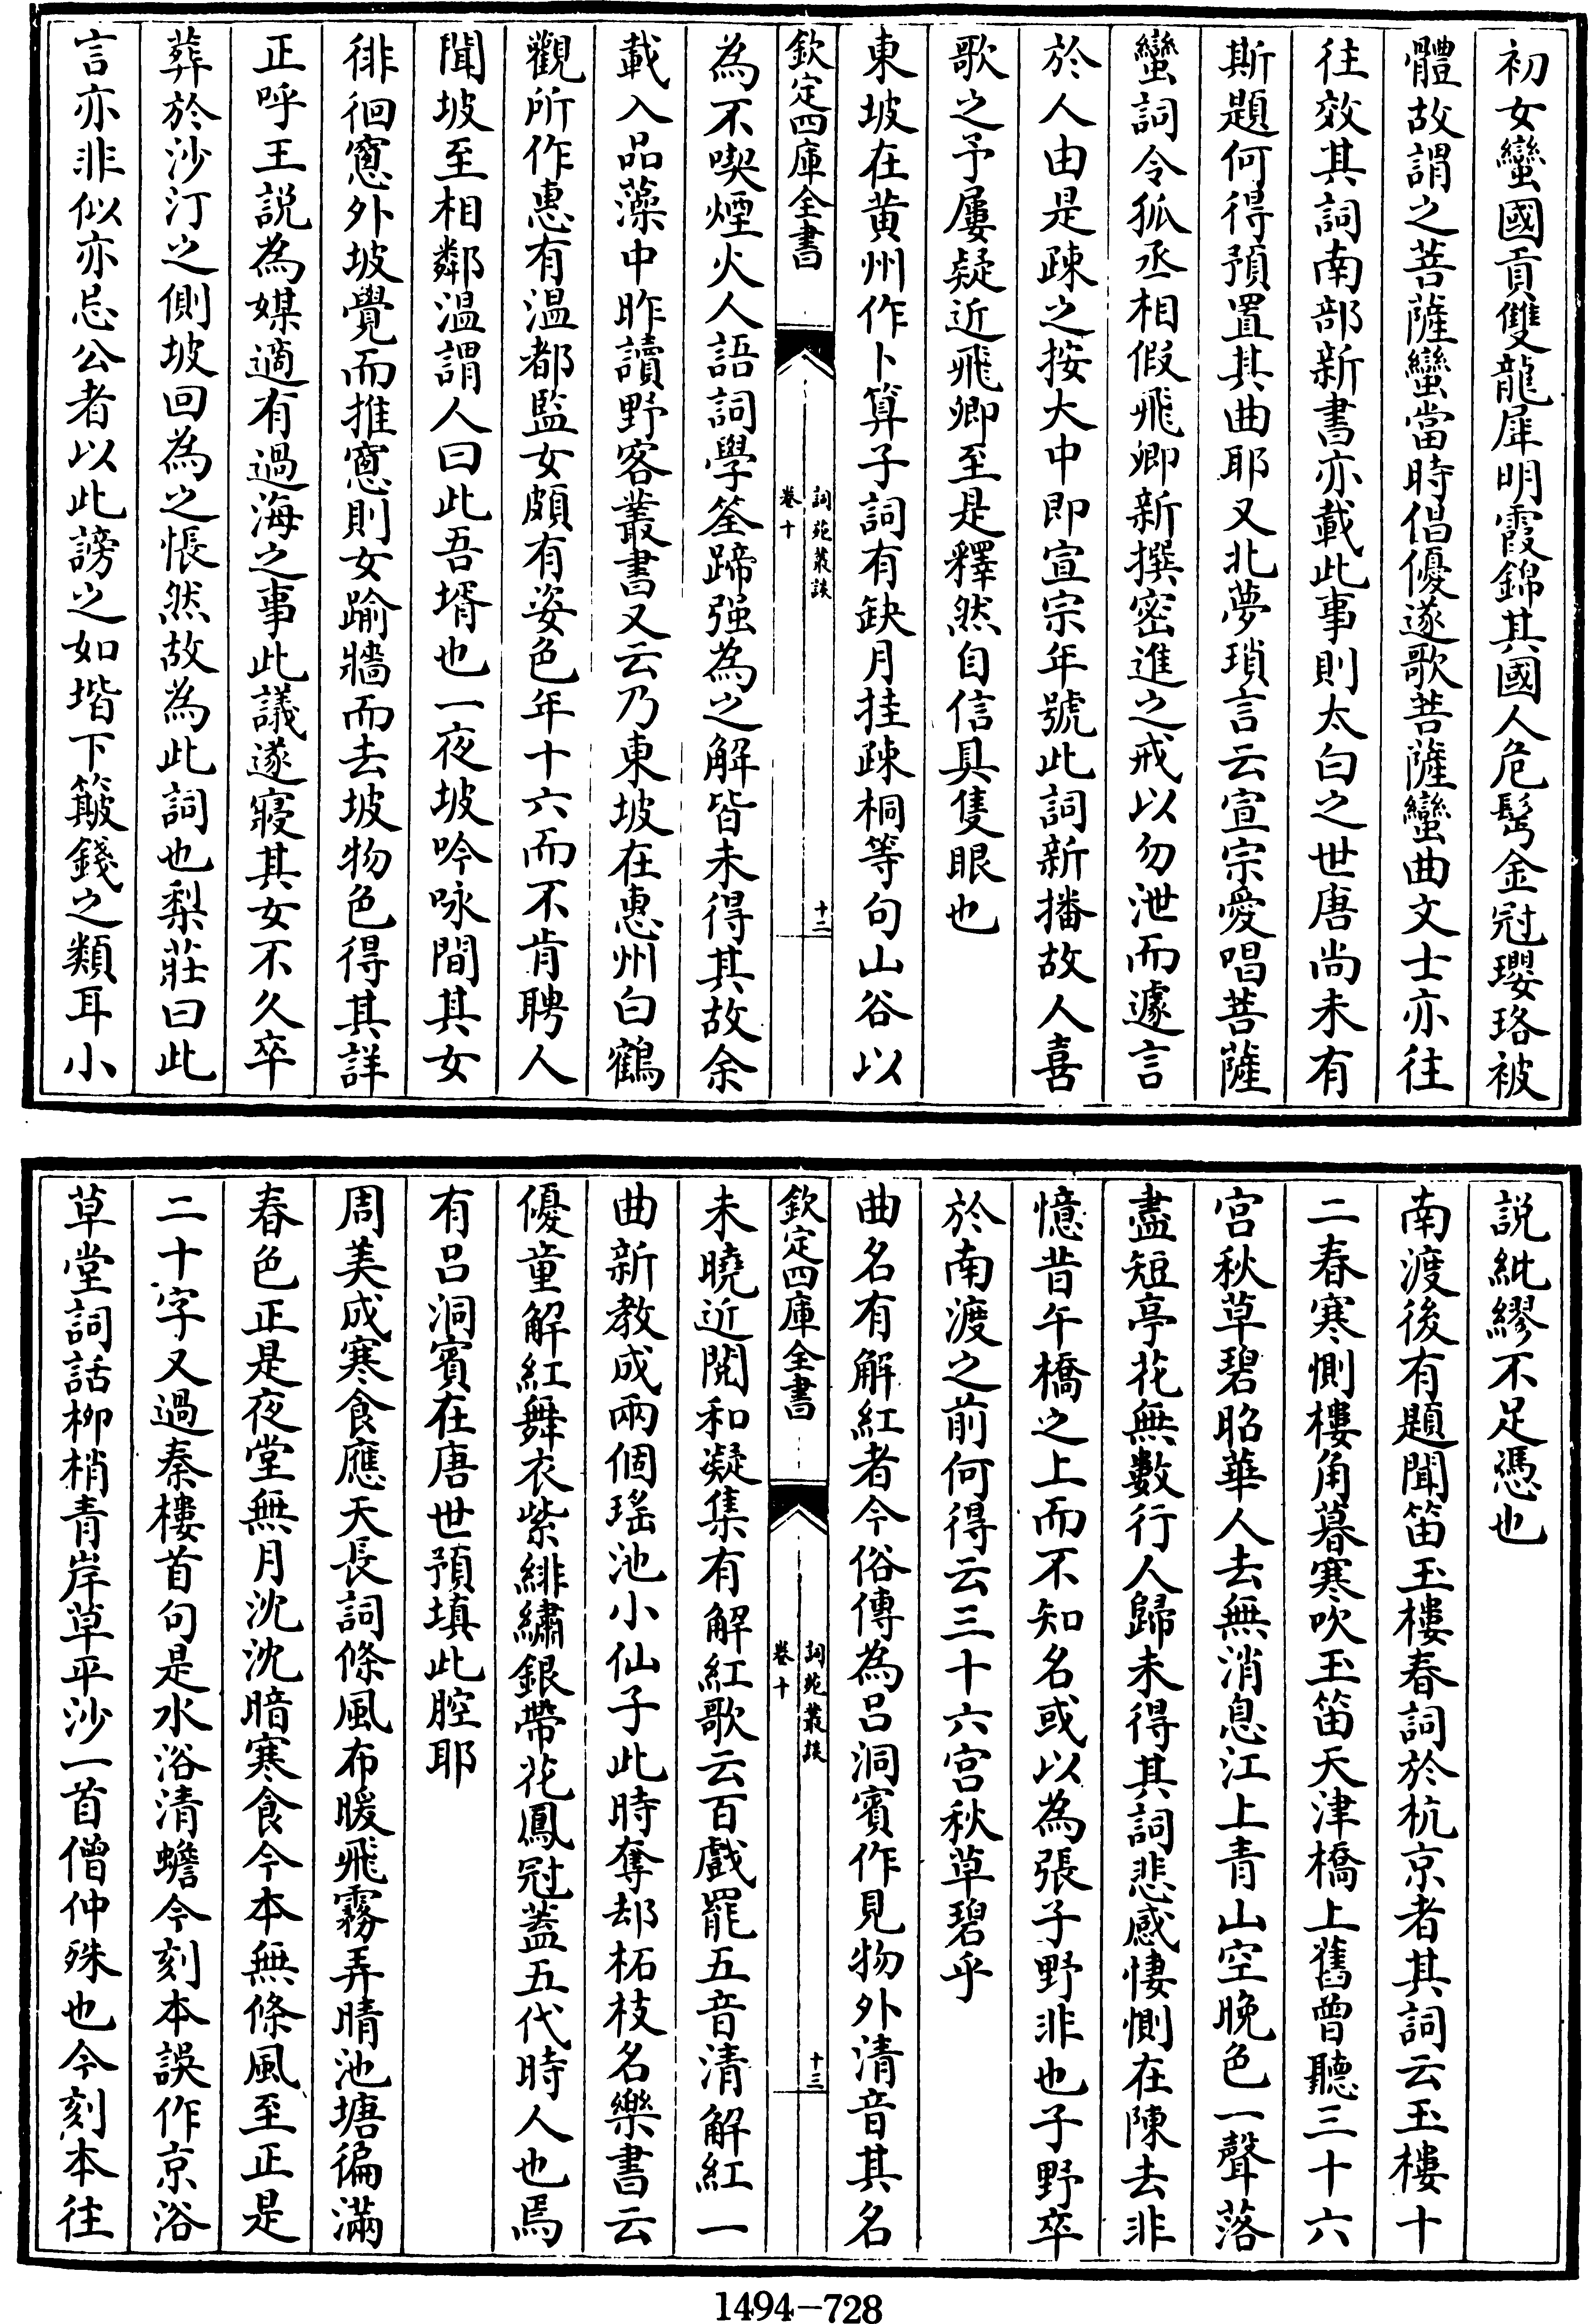 初女蠻國貢雙龍犀明霞錦其國人危髻金冠瓔珞被
體故謂之菩薩蠻當時倡優遂歌菩薩蠻曲文士亦往
往效其詞南部新書亦載此事則太白之世唐尚未有
斯題何得預置其曲耶又北夢瑣言云宣宗愛唱菩薩
蠻詞令狐丞相假飛卿新撰密進之戒以勿泄而遽言
於人由是疎之按大中即宣宗年號此詞新播故人喜
歌之予屢疑近飛卿至是釋然自信具隻眼也
東坡在黄州作卜算子詞有缺月挂疎桐等句山谷以
欽定四庫全書
詞苑叢談
卷十
十二
為不喫煙火人語詞學筌蹄强為之解皆未得其故余
載入品藻中昨讀野客叢書又云乃東坡在惠州白鶴
觀所作惠有温都監女頗有姿色年十六而不肯聘人
聞坡至相鄰温謂人曰此吾壻也一夜坡吟咏間其女
徘徊窻外坡覺而推窻則女踰牆而去坡物色得其詳
正呼王説為媒適有過海之事此議遂寢其女不久卒
葬於沙汀之側坡回為之悵然故為此詞也梨莊曰此
言亦非似亦忌公者以此謗之如堦下簸錢之類耳小
説紕繆不足憑也
南渡後有題聞笛玉樓春詞於杭京者其詞云玉樓十
二春寒惻樓角暮寒吹玉笛天津橋上舊曾聽三十六
宫秋草碧昭華人去無消息江上青山空晚色一聲落
盡短亭花無數行人歸未得其詞悲感悽惻在陳去非
憶昔午橋之上而不知名或以為張子野非也子野卒
於南渡之前何得云三十六宫秋草碧乎
曲名有解紅者今俗傳為吕洞賓作見物外清音其名
欽定四庫全書
詞苑叢談
卷十
十三
未曉近閱和凝集有解紅歌云百戲罷五音清解紅一
曲新教成兩個瑤池小仙子此時奪却柘枝名樂書云
優童解紅舞衣紫緋繡銀帶花鳳冠蓋五代時人也焉
有吕洞賓在唐世預填此腔耶
周美成寒食應天長詞條風布暖飛霧弄晴池塘徧滿
春色正是夜堂無月沈沈暗寒食今本無條風至正是
二十字又過秦樓首句是水浴清蟾今刻本誤作京浴
草堂詞話柳梢青岸草平沙一首僧仲殊也今刻本往
1494-728